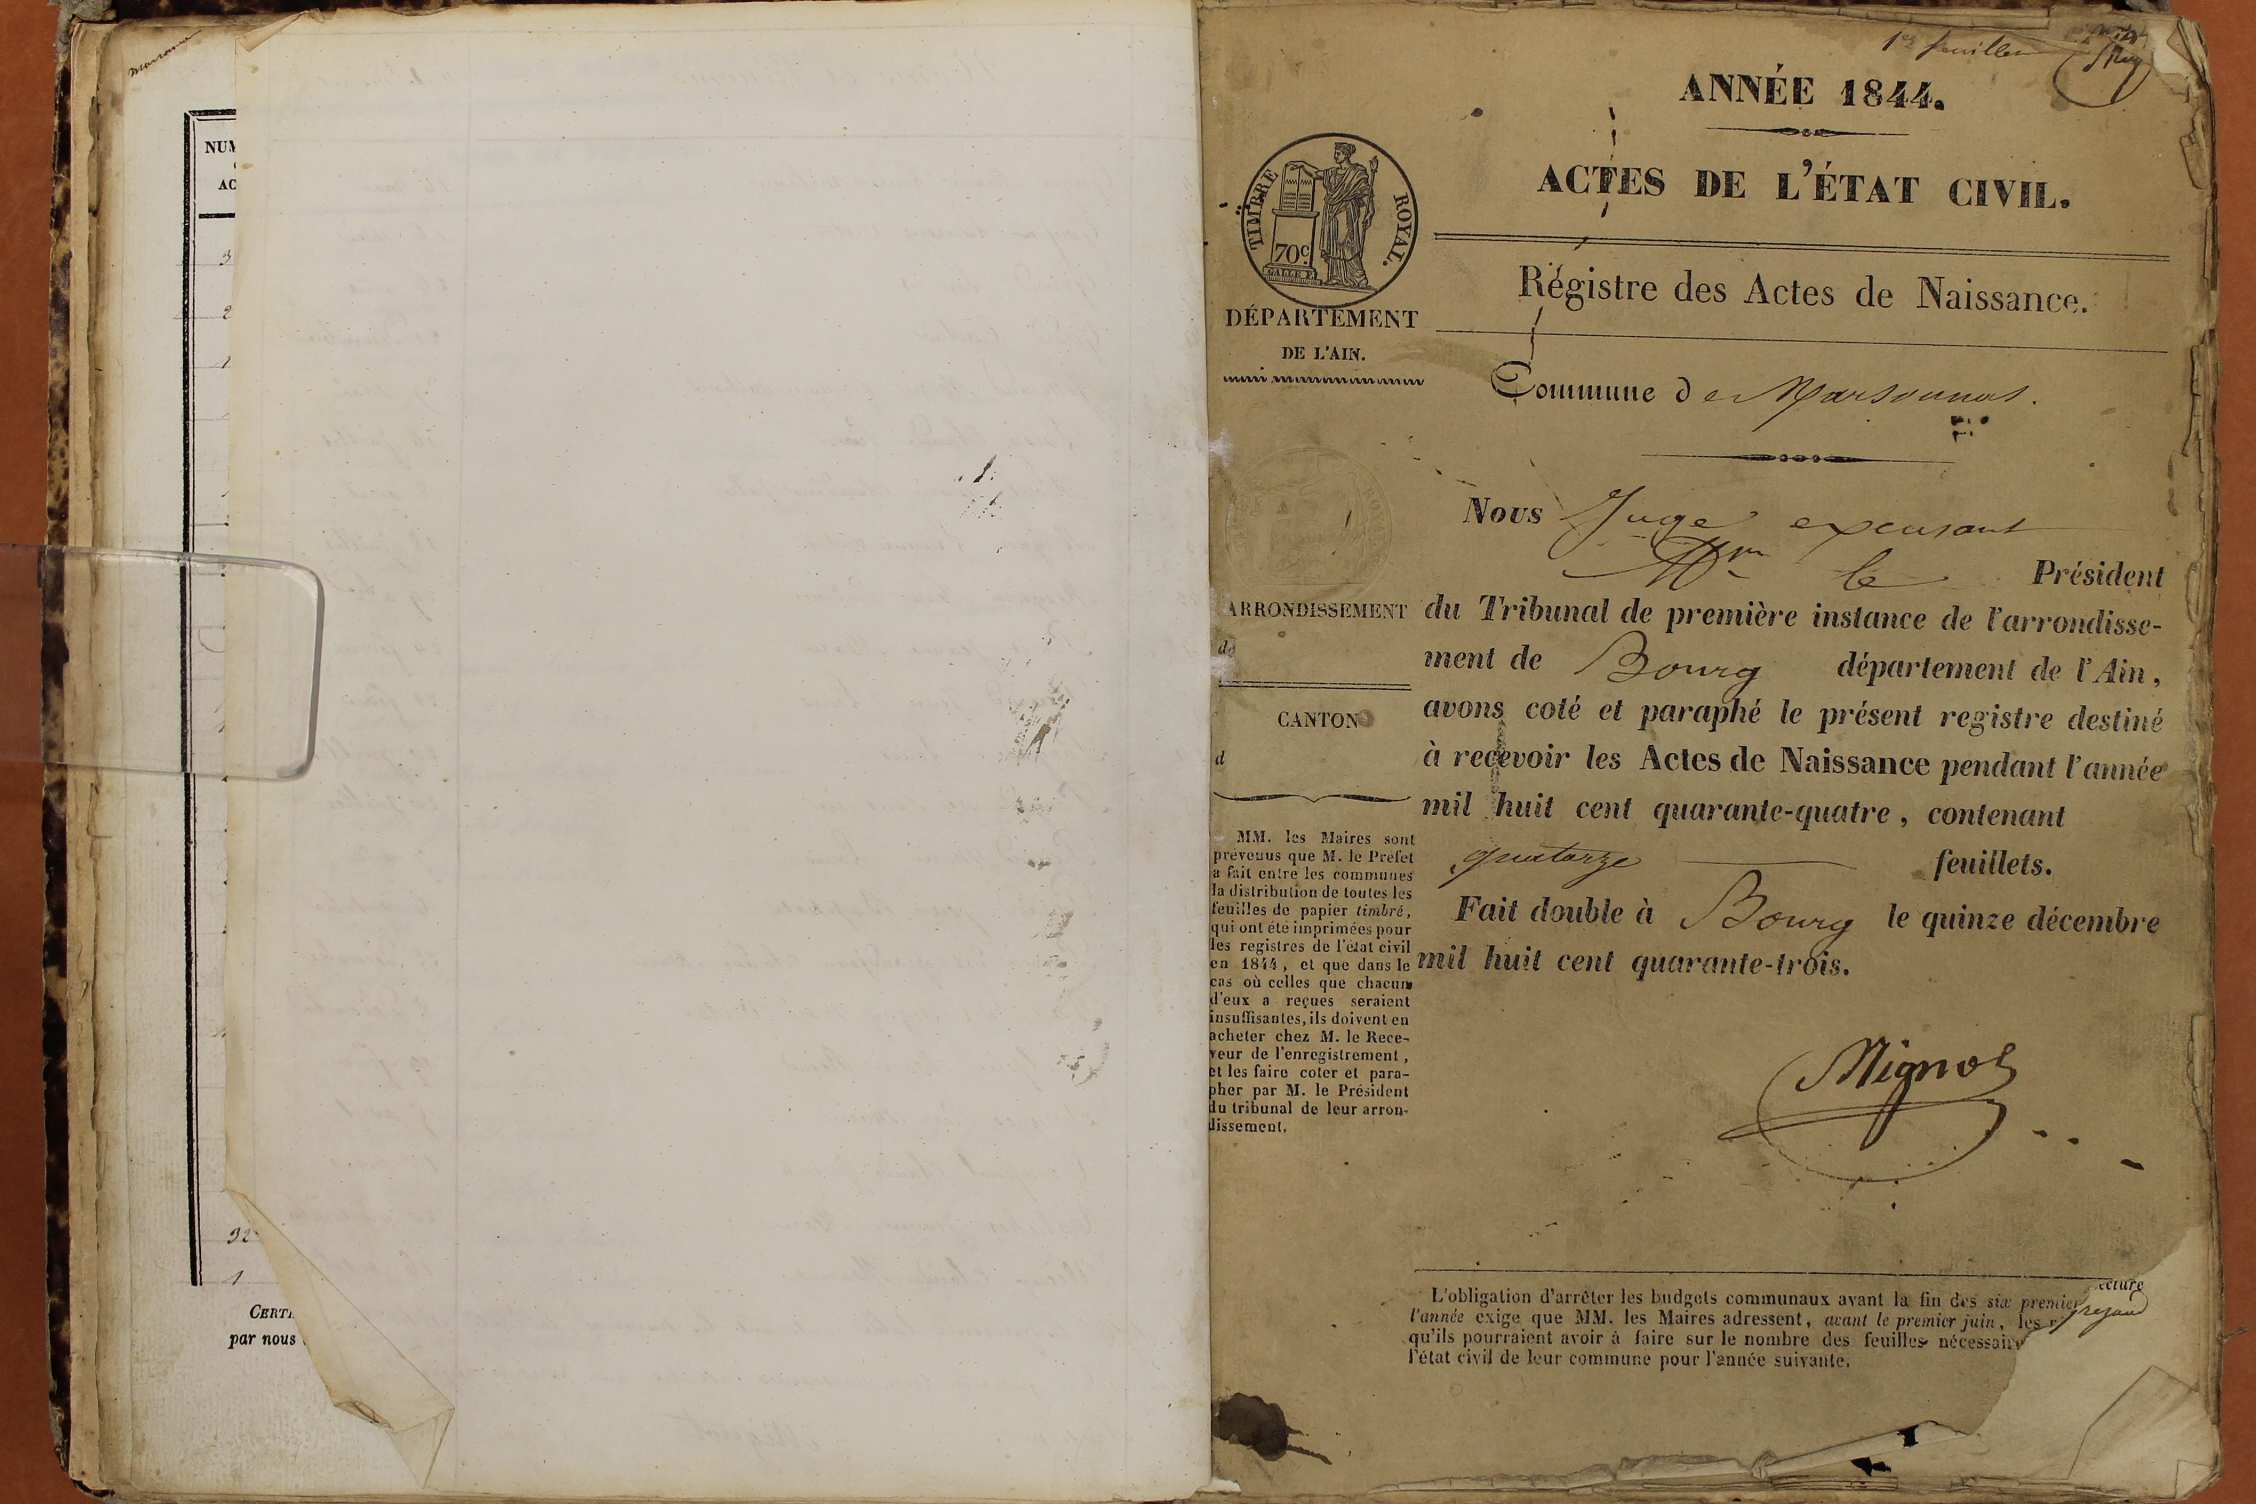 NUM
AC
3
2
1
92
1
CERTI
par nous
1er feuillet
ANNÉE 1844.
ACTES DE L'ÉTAT CIVIL.
TIMBRE ROYAL.
70c
Régistre des Actes de Naissance.
DÉPARTEMENT
DE L'AIN.
Commune de Marsonnas.
Nous Juge excusant
Mr le Président
du Tribunal de première instance de l'arrondisse-
ment de Bourg département de l'Ain,
avons coté et paraphé le présent registre destiné
à recevoir les Actes de Naissance pendant l'année
mil huit cent quarante-quatre, contenant
quatorze feuillets.
Fait double à Bourg le quinze décembre
mil huit cent quarante-trois.
Mignot
ARRONDISSEMENT
de
CANTON
d
MM. les Maires sont
prévenus que M. le Préfet
a fait entre les communes
la distribution de toutes les
feuilles de papier timbré,
qui ont été imprimées pour
les registres de l'état civil
en 1844, et que dans le
cas où celles que chacun
d'eux a reçues seraient
insuffisantes, ils doivent en
acheter chez M. le Rece-
veur de l'enregistrement,
et les faire coter et para-
pher par M. le Président
du tribunal de leur arron-
dissement.
L'obligation d'arrêter les budgets communaux avant la fin des six premier
l'année exige que MM. les Maires adressent, avant le premier juin, les r
qu'ils pourraient avoir à faire sur le nombre des feuilles nécessair
l'état civil de leur commune pour l'année suivante.